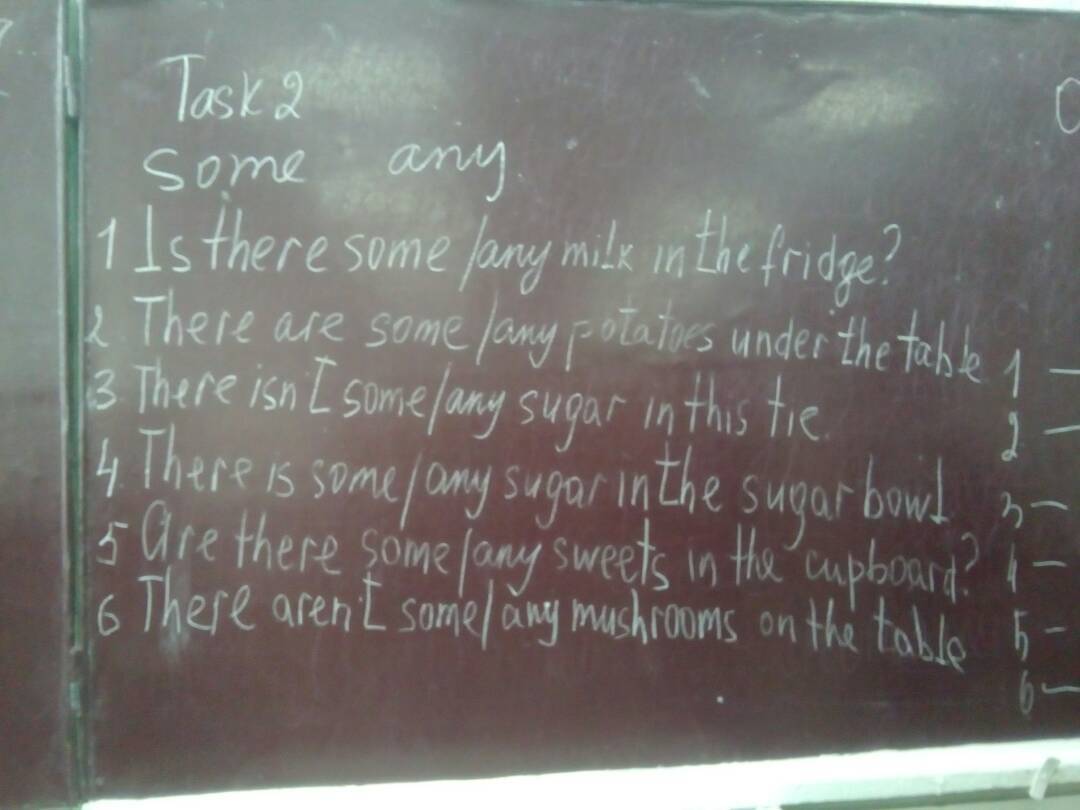 Task 2
some any
1 Is there some/any milk in the fridge?
2 There are some/any potatoes under the table
3 There isn't some/any sugar in this tie.
4 There is some/any sugar in the sugar bowl
5 Are there some/any sweets in the cupboard?
6 There aren't some/any mushrooms on the table
1 –
2 –
3 –
4 –
5 –
6 –